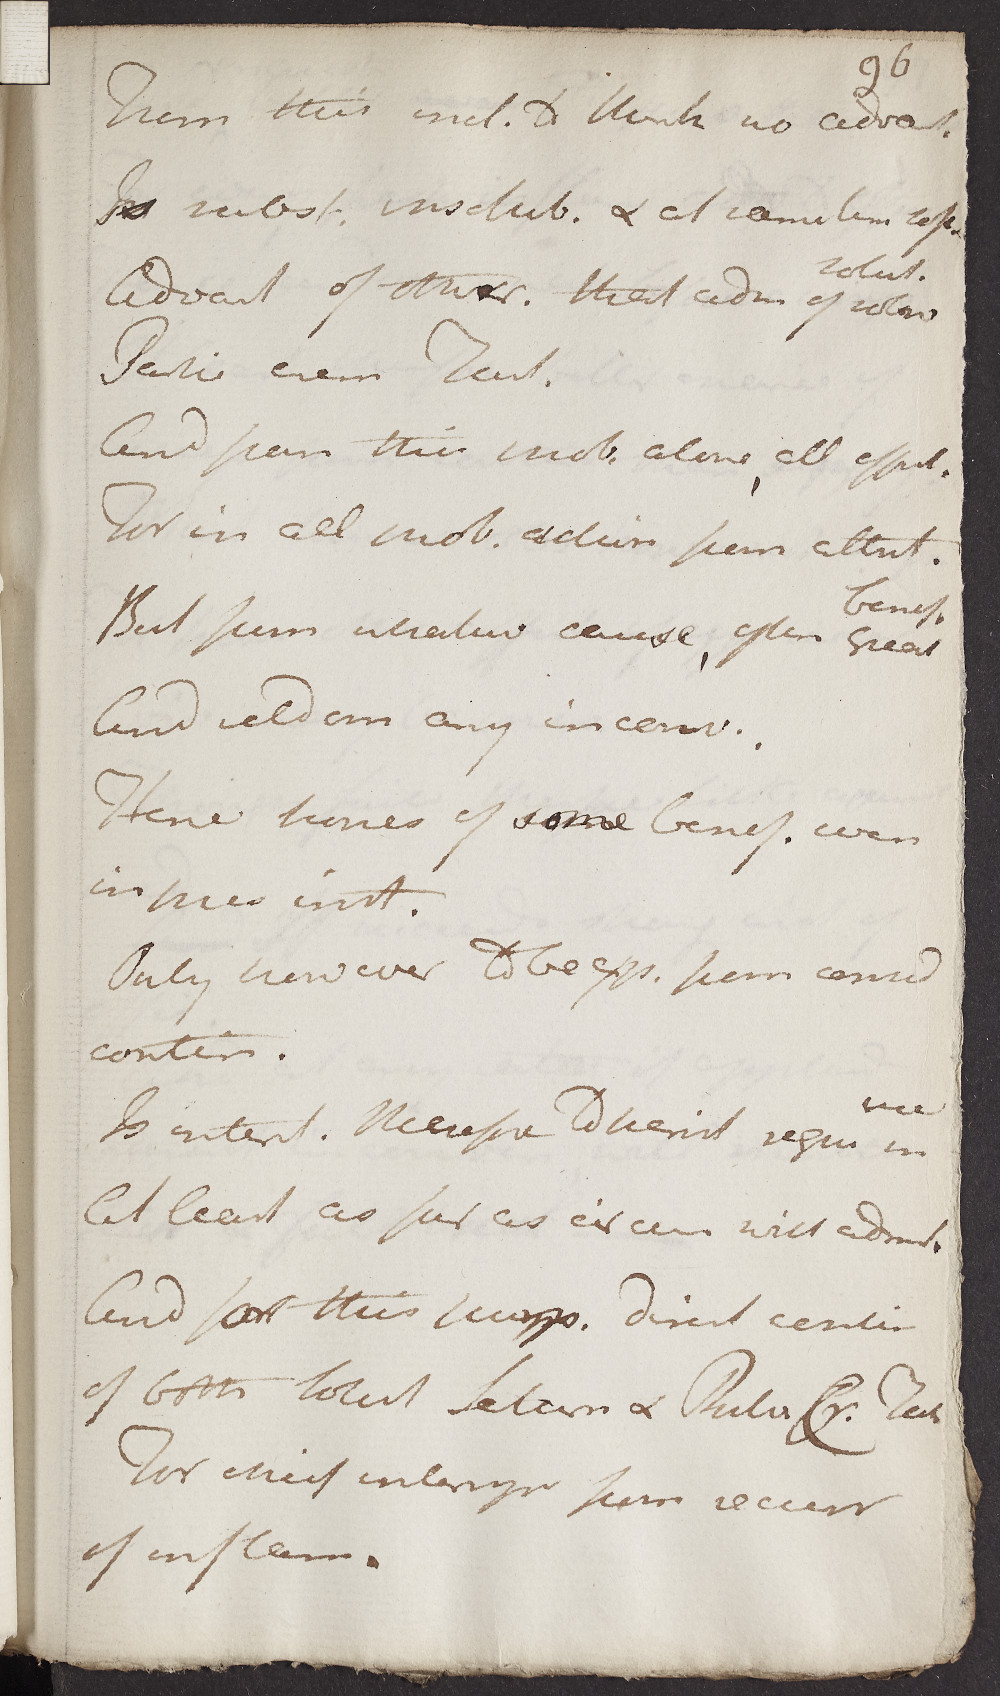 96
From this ind. I think no advant.
Is subst. insolub. & at same tim
Advant of other. that adm of solut.
Partic crem Tart.
And from this mob. alone, all effect.
For in all mob. action from attent.
But from whatever cause, often great benef.
And seldom any inconv.
Hence hopes of some benef. even
in pres inst.
Only however To be exp. from consid
contin.
Is intent. therefore To persist regu in use
At least as far as circum will admit.
And for this purp. direct contin
of both Solut Salarn & Pulv Cr. Tart
For chief interrup from recurr
of inflam.